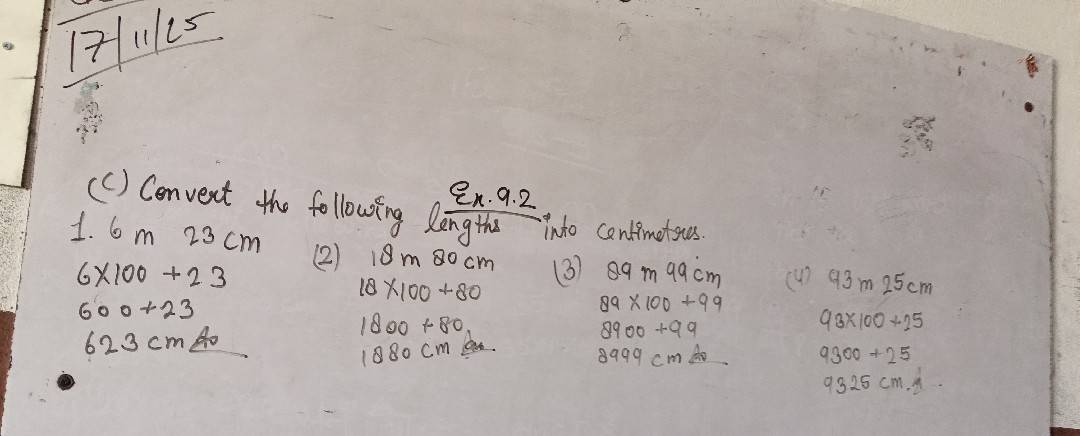 17/11/25
Ex. 9.2
(C) Convert the following lengths into centimetres.
1. 6 m 23 cm
6×100 +23
600+23
623 cm Ans
(2) 18 m 80 cm
18×100 +80
1800 + 80
1880 cm Ans
(3) 89 m 99 cm
89×100 +99
8900 +99
8999 cm Ans
(4) 93 m 25 cm
93×100 +25
9300 +25
9325 cm.